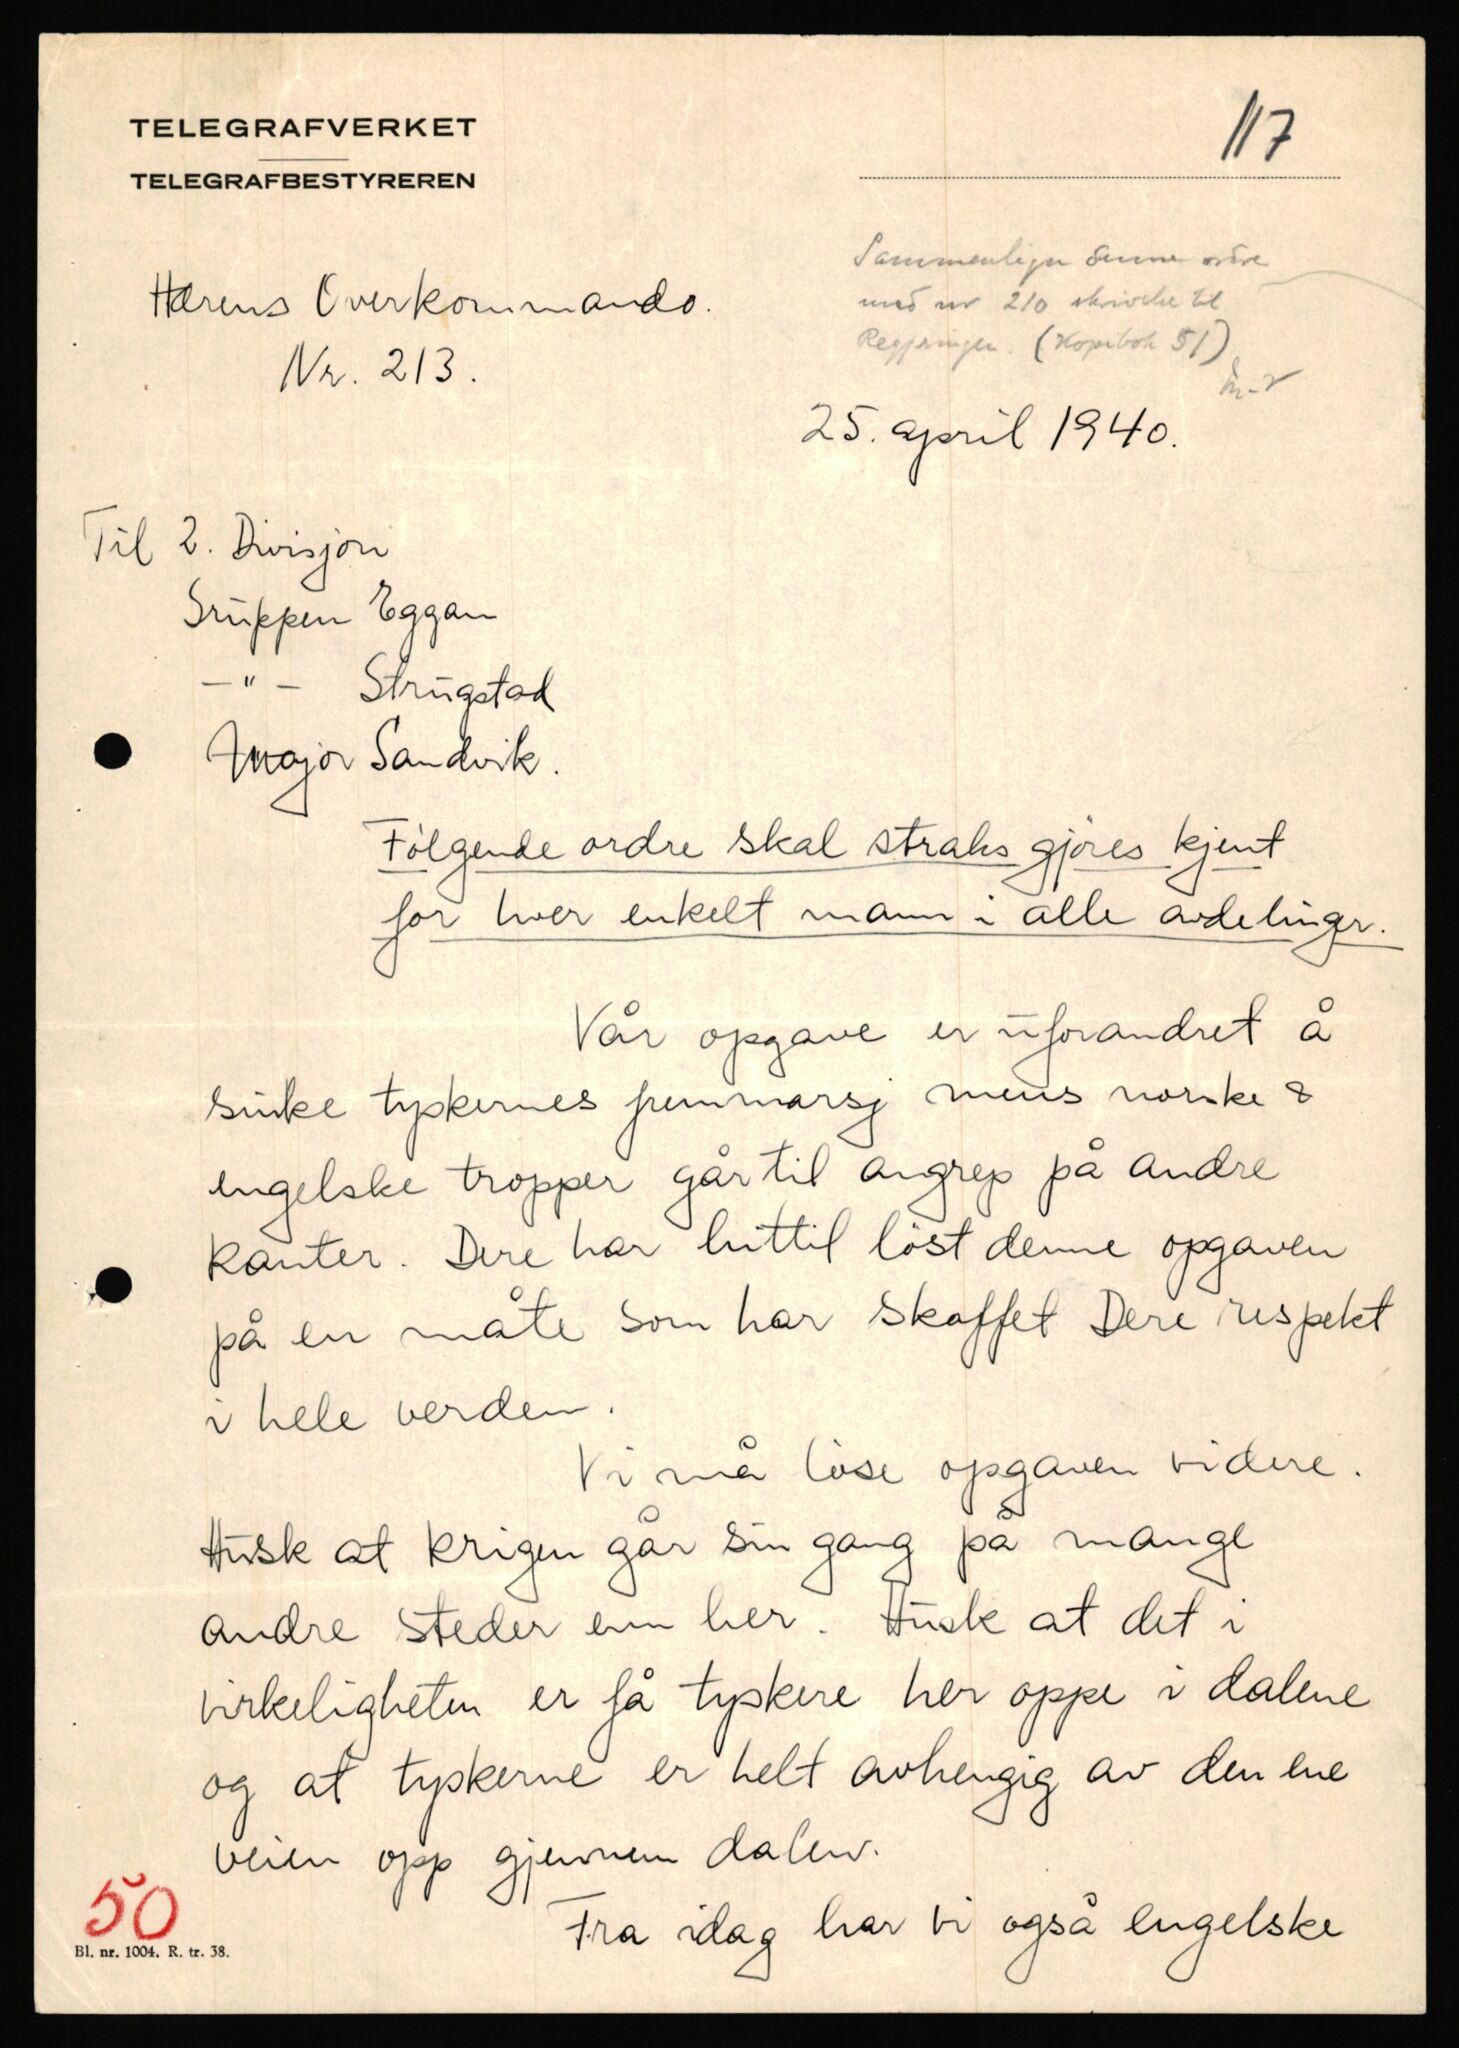 TELEGRAFVERKET
TELEGRAFBESTYREREN
117
Sammenlign denne ordre
med nr 210 skrivelse til
Regjeringen. (Kopibok 51)
Hærens Overkommando.
Nr. 213.
25. april 1940.
Til 2. Divisjon
Gruppen Eggan
—"— Strugstad
Major Sandvik.
Følgende ordre skal straks gjøres kjent
for hver enkelt mann i alle avdelinger.
Vår opgave er uforandret å
sinke tyskernes fremmarsj mens norske &
engelske tropper går til angrep på andre
kanter. Dere har hittil løst denne opgaven
på en måte som har skaffet Dere respekt
i hele verden.
Vi må løse opgaven videre.
Husk at krigen går sin gang på mange
andre steder enn her. Husk at det i
virkeligheten er få tyskere her oppe i dalene
og at tyskerne er helt avhengig av den ene
veien opp gjennem dalen.
Fra idag har vi også engelske
50
Bl. nr. 1004. R. tr. 38.